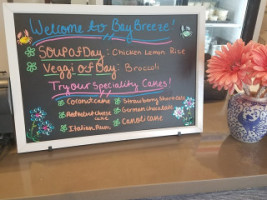 Welcome to Bay Breeze!
Soup of Day: Chicken Lemon Rice
Veggi of Day: Broccoli
Try our Speciality Cakes!
Coconut cake
Strawberry Shortcake
German Chocolate
cake
Italian Rum
Canoli cake